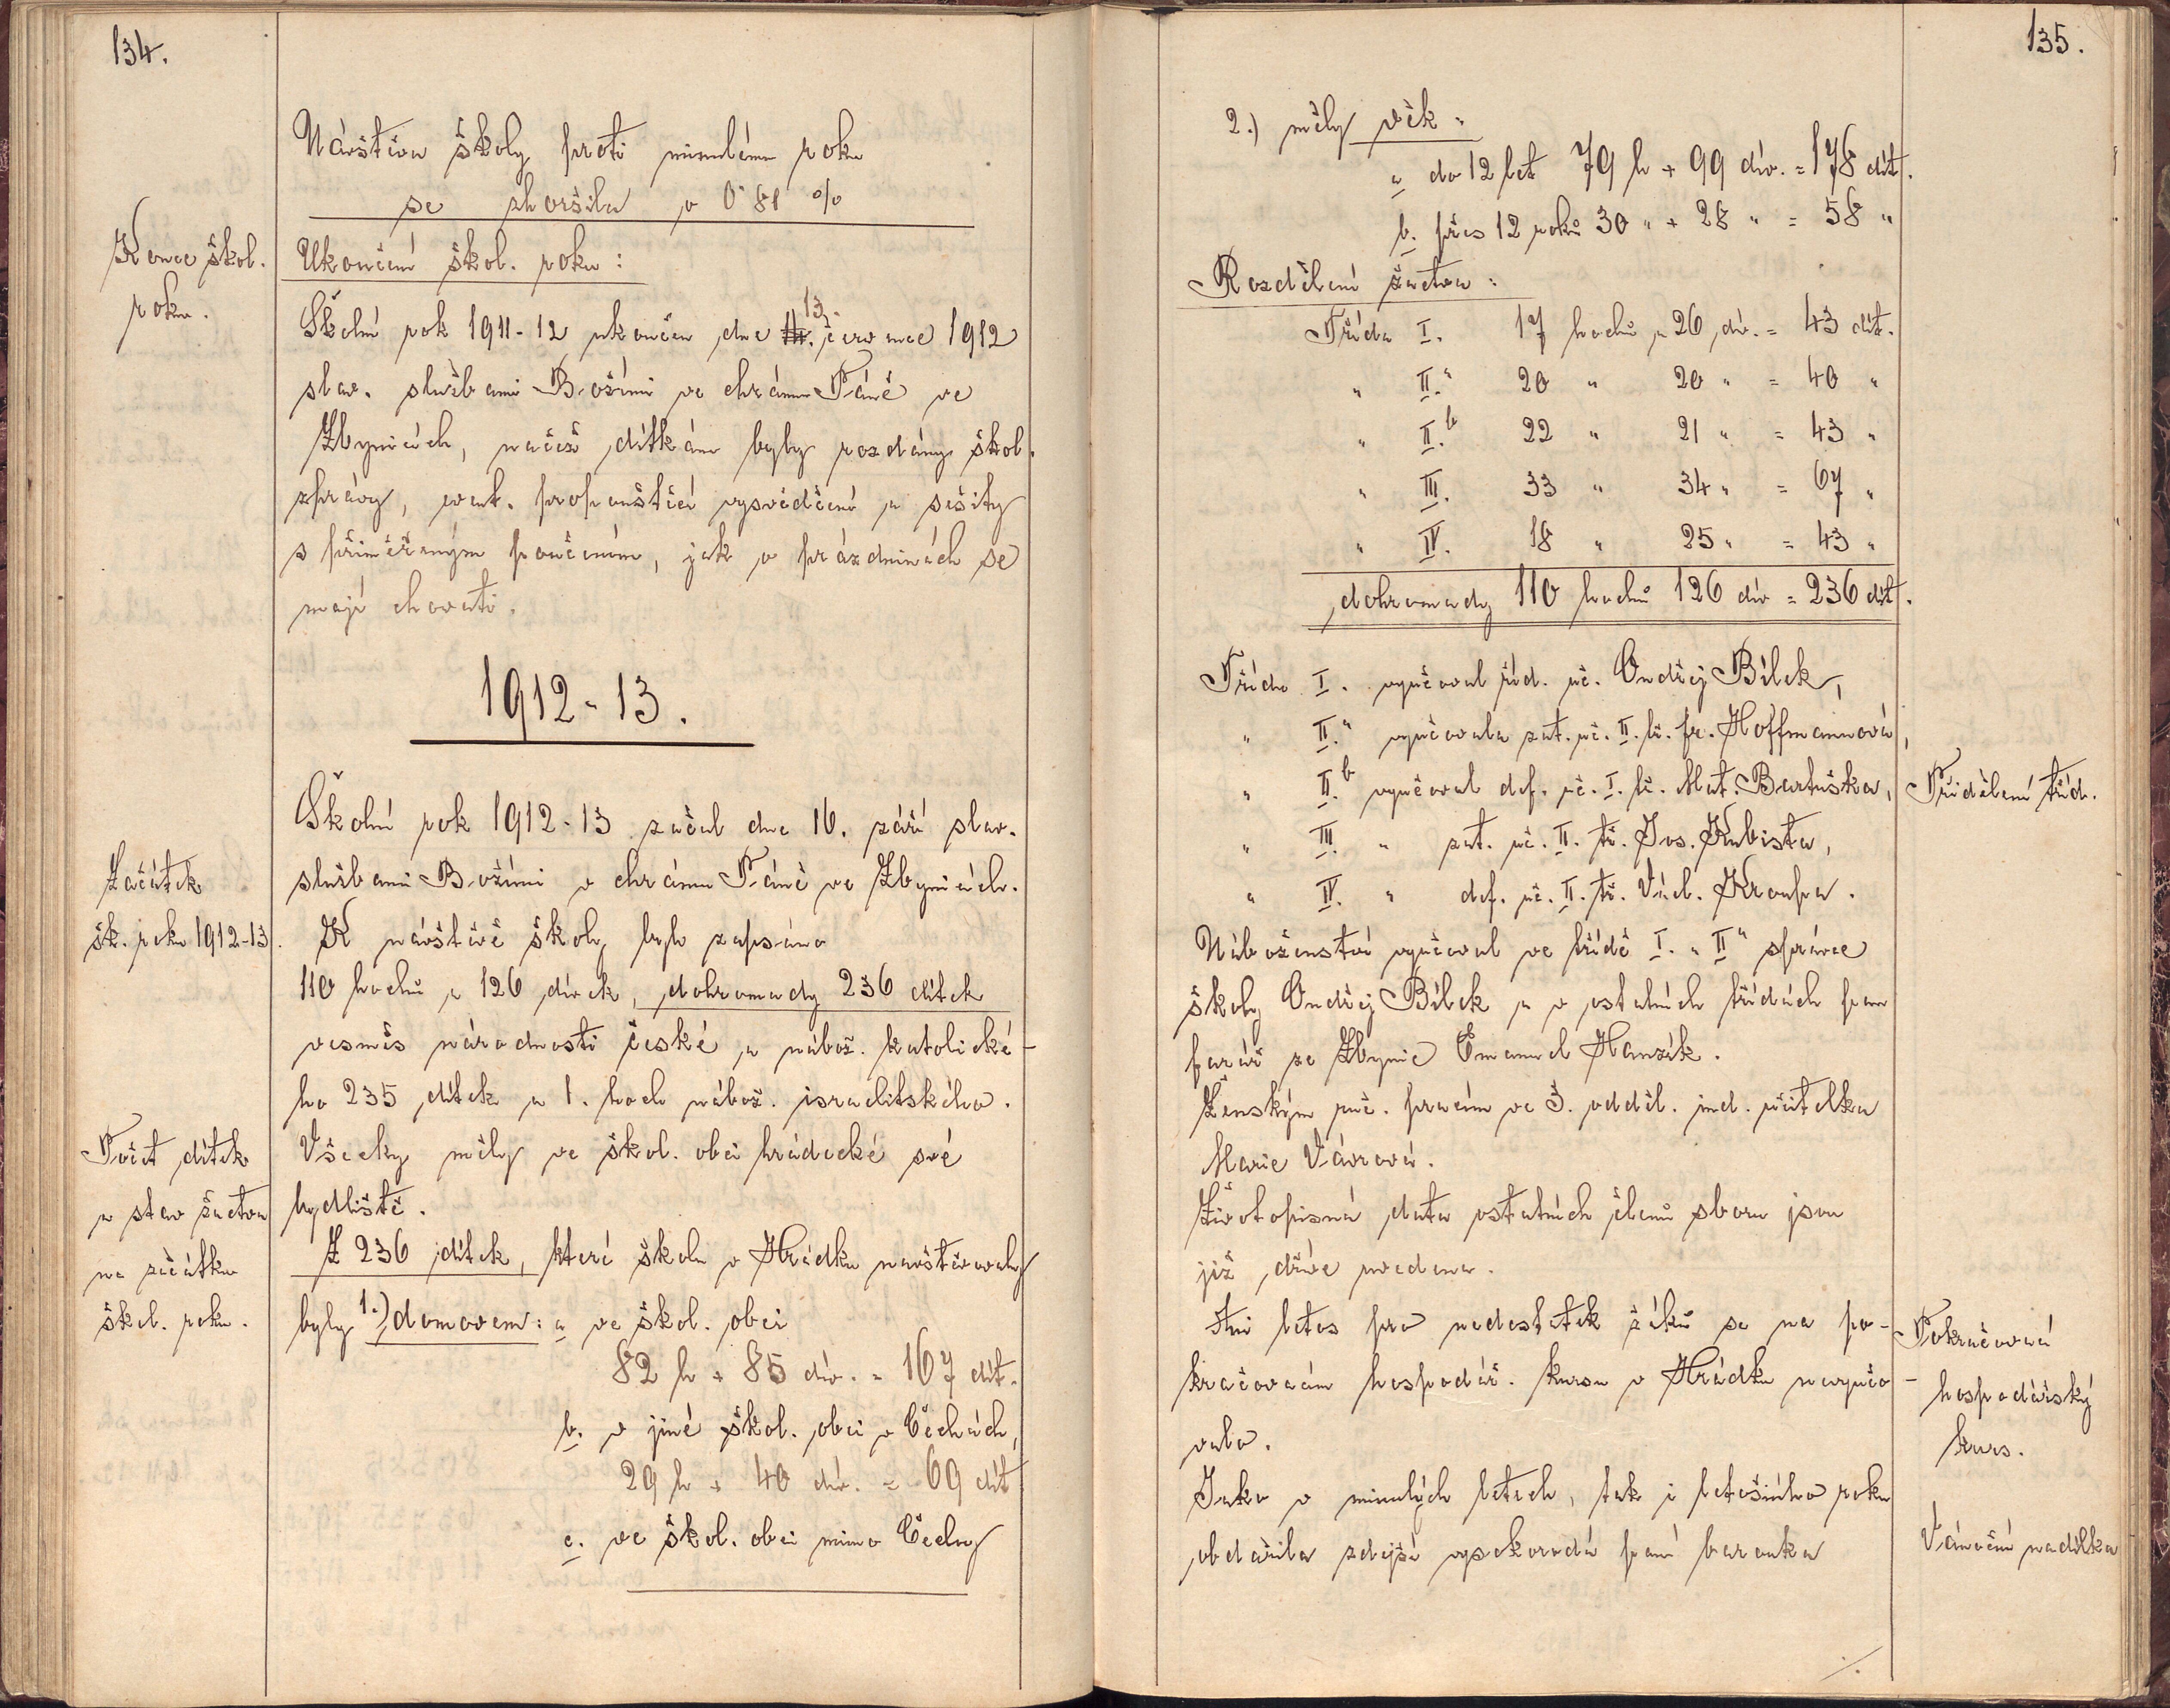 134.
Návštěva školy proti minulému roku
se zhoršila o 0·81 %
Konec škol.
roku.
Ukončení škol. roku:
13.
Školní rok 1911-12 ukončen dne 14. července 1912
slav. službami Božími ve chrámu Páně ve
Zbynicích, načež dítkám byly rozdány škol.
zprávy, event. propouštěcí vysvědčení a sešity
s přiměřeným poučením, jak o prázdninách se
mají chovati.
1912-13.
Začátek
šk. roku 1912-13.
Školní rok 1912-13 začal dne 16. září slav.
službami Božími v chrámu Páně ve Zbynicích.
K návštěvě školy bylo zapsáno
110 hochů a 126 dívek, dohromady 236 dítek
vesměs národnosti české a nábož. katolické-
ho 235 dítek a 1. hoch nábož. israelitského.
Počet dítek
a stav žactva
na začátku
škol. roku.
Všecky měly ve škol. obci hrádecké své
bydliště.
Z 236 dítek, které školu v Hrádku navštěvovaly
byly 1.) domovem: a ve škol. obci
82 h + 85 dív. = 167 dít.
b. v jiné škol. obci v Čechách,
29 h + 40 dív. = 69 dít
c. ve škol. obci mimo Čechy
135.
2.) měly věk:
a do 12 let 79 h + 99 dív. = 178 dít.
b. přes 12 roků 30 " + 28 " = 58 "
Rozdělení žactva:
Třída I. 17 hochů a 26 dív. = 43 dít.
" II.a 20 " 20 " = 40 "
" II.b 22 " 21 " = 43 "
" III. 33 " 34 " = 67 "
" IV. 18 " 25 " = 43 "
dohromady 110 hochů 126 dív = 236 dít.
Třídu I. vyučoval říd. uč. Ondřej Bílek,
" II.a vyučovala zat. uč. II. tř. fr. Hoffmannová,
" II.b vyučoval def. uč. I. tř. Mat. Bartuška,
Přidělení tříd.
" III. " zat. uč. II. tř. Jos. Kubista,
" IV. " def. uč. II. tř. Václ. Kroupa.
Náboženství vyučoval ve třídě I. a II a správce
školy Ondřej Bílek a v ostatních třídách pan
farář ze Zbynic Emanuel Hanzík.
Ženským ruč. pracím ve 3. odděl. ind. učitelka
Marie Vávrová.
Životopisná data ostatních členů sboru jsou
již dříve uvedena.
Ani letos pro nedostatek žáků se na po-
kračovacím hospodář. kursu v Hrádku nevyučo-
valo.
Pokračovací
hospodářský
kurs.
Jako v minulých letech, tak i letošního roku
obdařila zdejší vysokorodá paní baronka
Vánoční nadílka